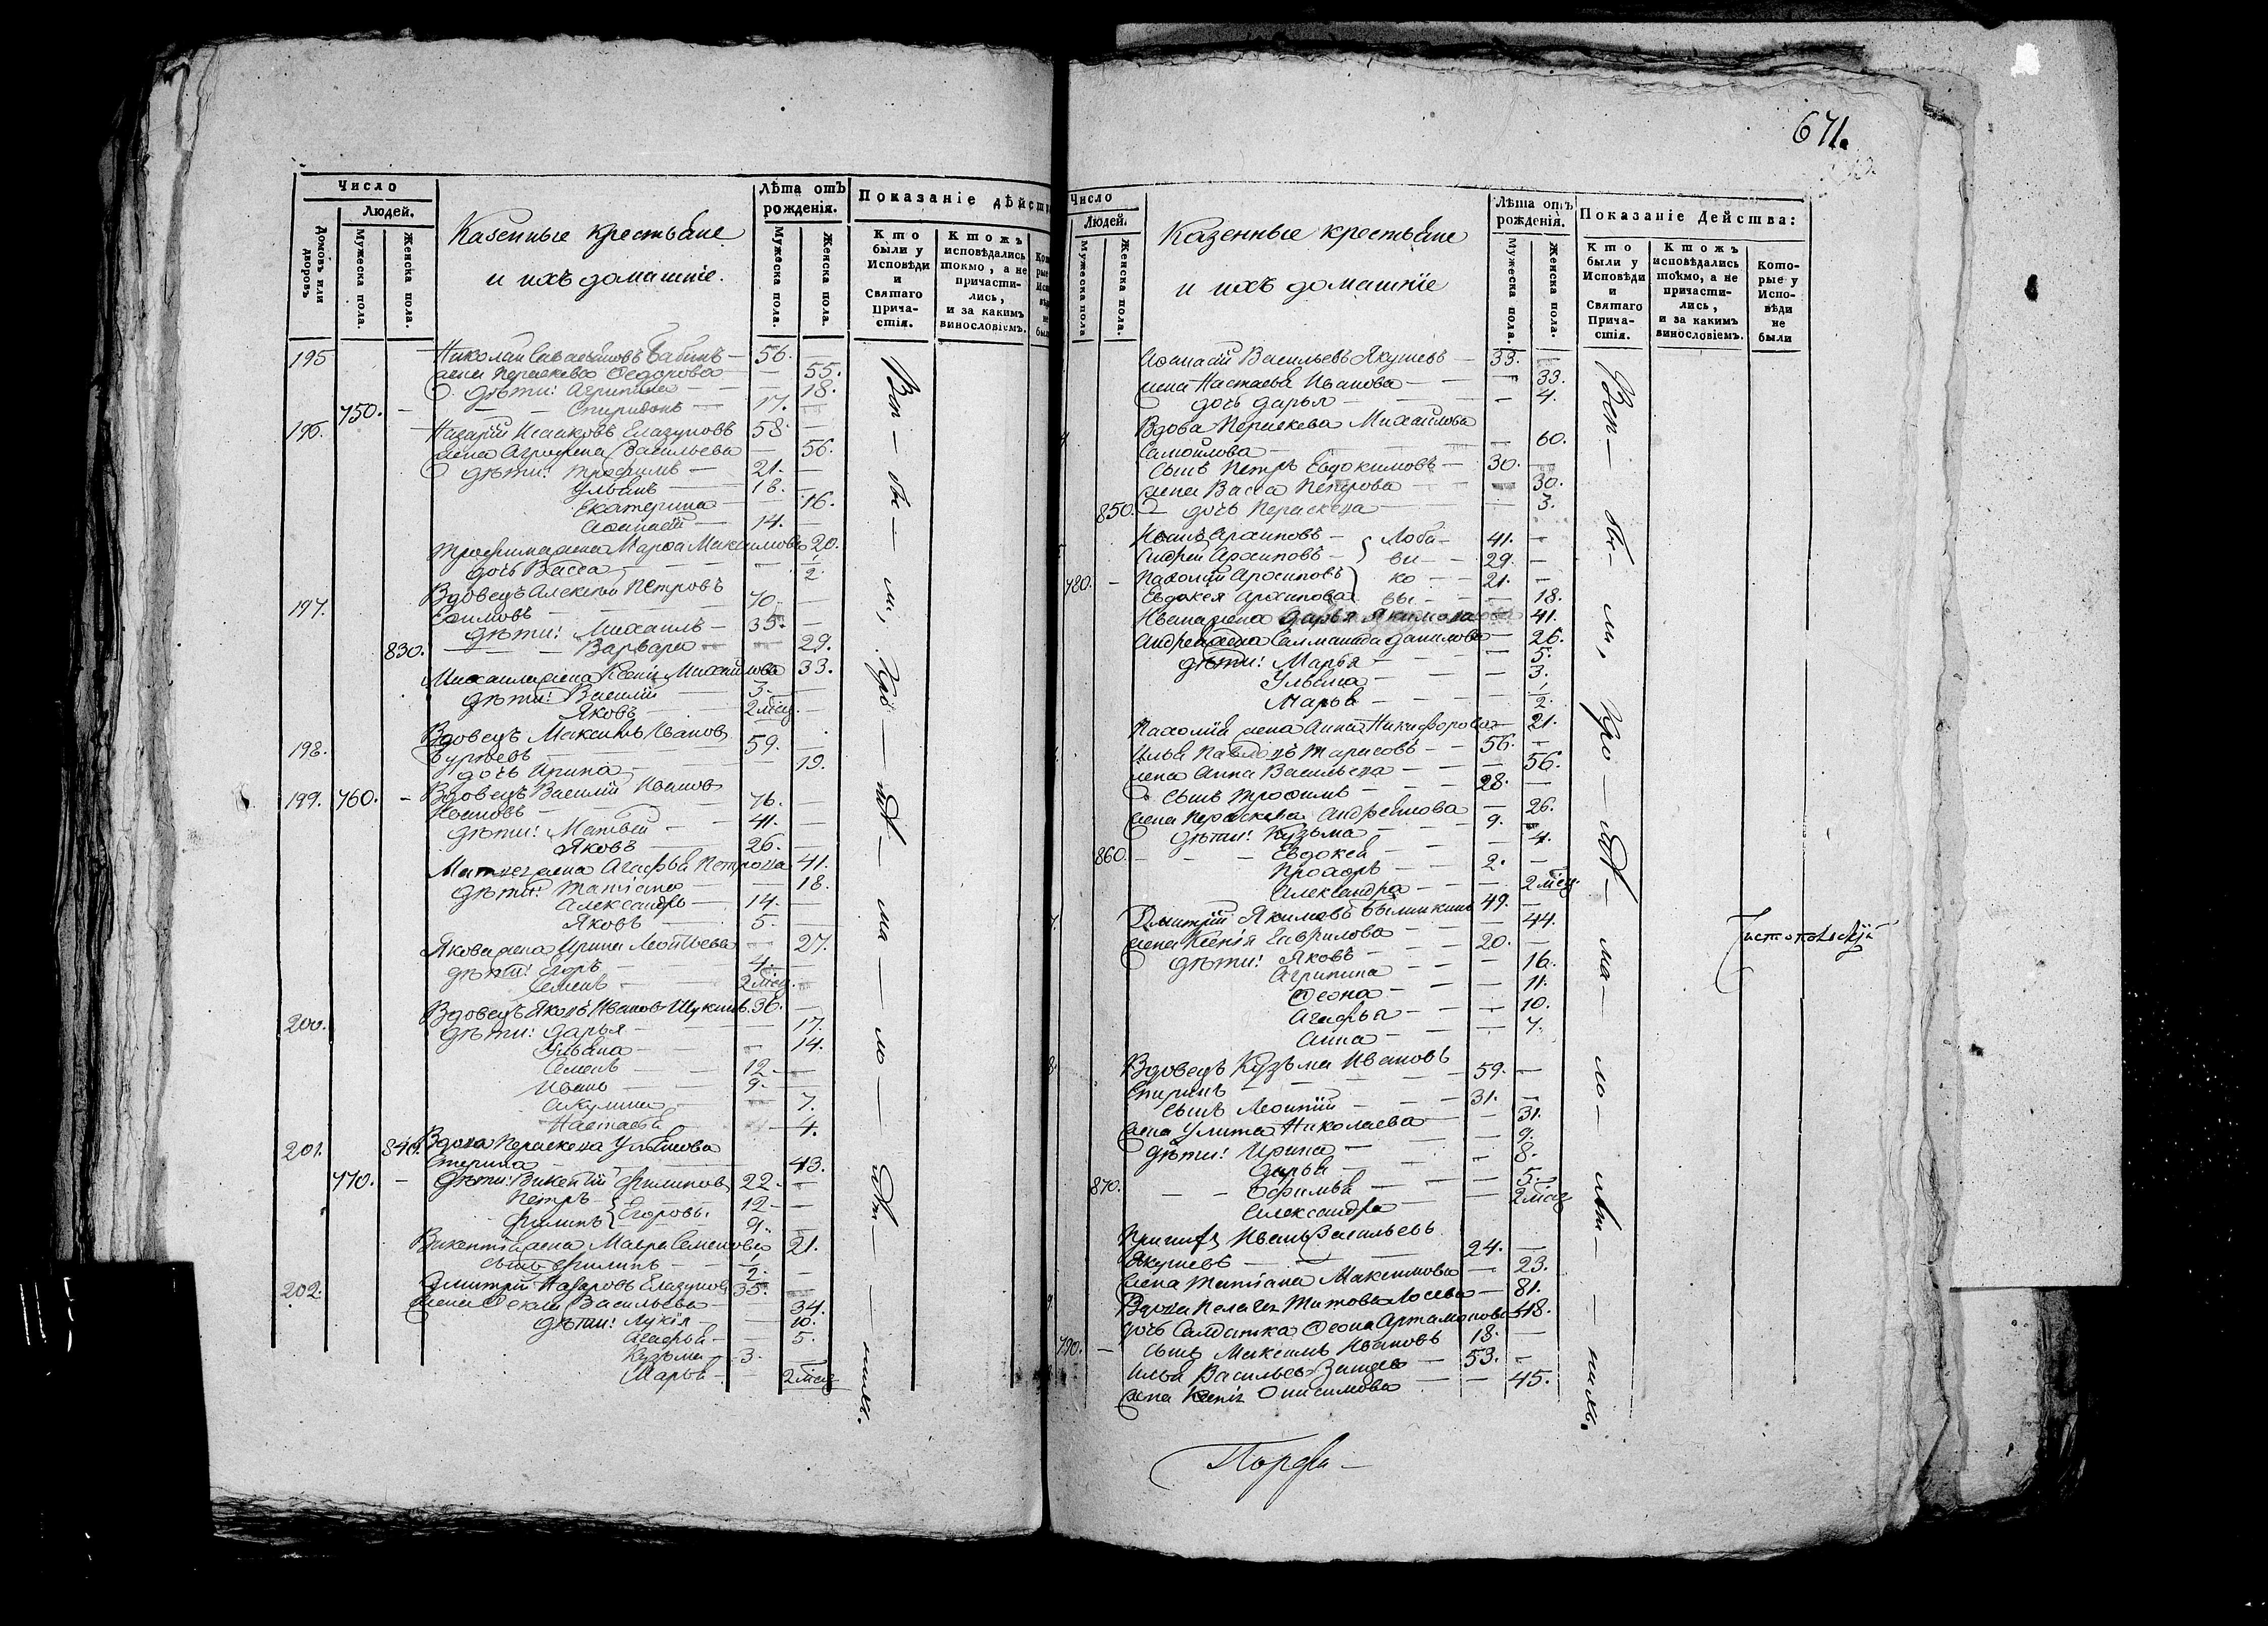 Число
Людей.
Домовъ или дворовъ
Мужеска пола.
Женска пола.
Казенные крестьяне
и ихъ домашніе.
Лѣта отъ рожденія.
Мужеска пола.
Женска пола.
Показаніе дѣйст
Кто были у Исповѣди и Святаго Прича-стія.
Ктожъ исповѣдались токмо, а не причасти-лись, и за какимъ винословіемъ.
195 Николай Савельиновъ Бабинъ — 56.
жена Параскева Федорова — 55.
дѣти: Агрипина — 18.
750. — Спиридонъ — 17.
196. Назарій Исааковъ Елазуновъ 58.
жена Агрофена Васильева — 56.
дѣти: Трофимъ — 21.
Ульянъ — 18.
Екатерина — 16.
Афанасій — 14.
Трофима жена Марфа Максимова 20.
дочь Васса — 1/2.
197. Вдовецъ Алексей Петровъ
Ефимовъ — 70.
дѣти: Михаилъ — 35.
830. — Варвара — 29.
Михаила жена Ксенія Михайлова 33.
дѣти: Василій — 3.
Яковъ — 2 мѣсяц.
198. Вдовецъ Максимъ Ивановъ
59.
дочь Ирина — 19.
199. 760. — Вдовецъ Василій Ивановъ
76.
дѣти: Матвей — 41.
Яковъ — 26.
Матвея жена Агафья Петрова 41.
дѣти: Татіана — 18.
Александръ — 14.
Яковъ — 5.
Якова жена Ирина Леонтьева — 27.
дѣти: Егоръ — 4.
Семенъ — 2 мѣсяц.
200. Вдовецъ Яковъ Ивановъ Шукинъ 36.
дѣти: Дарья — 17.
Ульяна — 14.
Семенъ — 12.
Иванъ — 9.
Акулина — 7.
Настасья — 4.
201. 840. Вдова Параскева Ульянова
43.
770. — дѣти: Викентій Филиповъ 22.
Петръ } Егоровы. 12.
Филипъ 9.
Викентія жена Мавра Семенова 21.
сынъ Филипъ — 1/2.
202. Дмитрій Назаровъ Елазуновъ 35.
жена Фекла Васильева — 34.
дѣти: Лукія — 10.
Агафья — 5.
Кузьма — 3.
Марья — 2 мѣсяц
671.
Число
Людей.
Мужеска пола
Женска пола.
Казенные крестьяне
и ихъ домашніе
Лѣта отъ рожденія.
Мужеска пола.
Женска пола.
Показаніе Действа:
Кто были у Исповѣди и Святаго Прича-стія.
Ктожъ исповѣдались токмо, а не причасти-лись, и за какимъ винословіемъ.
Кото-рые у Испо-вѣди не были
Афанасій Васильевъ Якушевъ — 33.
жена Настасья Иванова — 33.
дочь Дарья — 4.
Вдова Параскева Михайлова
Самойлова — 60.
сынъ Петръ Евдокимовъ — 30.
жена Васса Петрова — 30.
850. — дочь Параскева — 3.
Иванъ Архиповъ — 41.
Андрей Архиповъ — 29.
780. — Пахомій Архиповъ — 21.
Евдокея Архипова — 18.
Ивана жена Дарья Якимова 41.
Андрея жена Саламанида Данилова — 26.
дѣти: Марья — 5.
Ульяна — 3.
Марья — 1/2.
Пахомія жена Анна Никифорова — 21.
Илья Павловъ Тарасовъ — 56.
жена Анна Васильева — 56.
сынъ Трофимъ — 28.
жена Параскева Андреянова — 26.
дѣти: Кузьма — 9.
860. — Евдокея — 4.
Прохоръ — 2.
Александра — 2 мѣсяц.
Дмитрій Якимовъ Былинкинъ 49.
жена Ксенія Гаврилова — 44.
дѣти: Яковъ — 20.
Агрипина — 16.
Феона — 11.
Агафья — 10.
Анна — 7.
Вдовецъ Кузьма Ивановъ
59.
сынъ Леонтій — 31.
жена Улита Николаева — 31.
дѣти: Ирина — 9.
Дарья — 8.
870. — Ефимья — 5.
Александра — 2 мѣсяц
Иванъ Васильевъ
Якушевъ — 24.
жена Татіана Максимова — 23.
Вдова Пелагея Титова Лосева — 81.
дочь Салдатка Феона Артамонова 48.
790. — сынъ Максимъ Ивановъ 18.
Илья Васильевъ Зайцевъ — 53.
жена Ксенія Онисимова — 45.